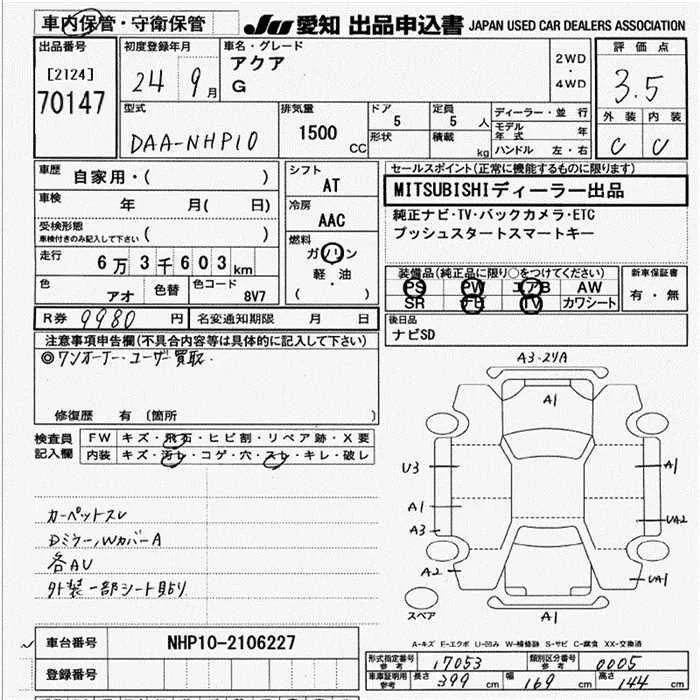 車内保管・守衛保管 JU 愛知 出品申込書 JAPAN USED CAR DEALERS ASSOCIATION
出品番号 [2124] 70147
初度登録年月 24 9月
車名・グレード アクア G
2WD・4WD
評価点 3.5
外装 内装
C C
型式 DAA-NHP10
排気量 1500 CC
ドア 5 定員 5 人
形状 積載 kg
ディーラー・並行
モデル年式 年
ハンドル 左・右
車歴 自家用・( )
車検 年 月( 日)
受検形態 車検付きのみ記入して下さい ( )
走行 6万3千603km
色 アオ 色替 色コード 8V7
シフト AT
冷房 AAC
燃料 ガソリン 軽・油 ( )
セールスポイント(正常に機能するものに限ります)
MITSUBISHIディーラー出品
純正ナビ・TV・バックカメラ・ETC
プッシュスタートスマートキー
装備品(純正品に限り○をつけてください)
PS PW エアB AW
SR ナビ TV カワシート
新車保証書 有・無
R券 9980 円 名変通知期限 月 日
後日品 ナビSD
注意事項申告欄(不具合内容等は具体的に記入して下さい)
◎ワンオーナー・ユーザー買取.
修復歴 有 (箇所 )
検査員記入欄
FW キズ・飛石・ヒビ割・リペア跡・X要
内装 キズ・汚レ・コゲ・穴・スレ・キレ・破レ
カーペットスレ
Dミラー,WカバーA
各AU
外装一部シート貼り
A3・2 1A
A1
U3
A1
A1
A3
UA2
A2
UA1
スペア
A1
A-キズ E-エクボ U-凹み W-補修跡 S-サビ C-腐食 XX-交換済
車台番号 NHP10-2106227
登録番号
形式指定番号 参考 17053 類別区分番号 参考 0005
車庫証明用 参考 長さ 399 cm 幅 169 cm 高さ 144 cm